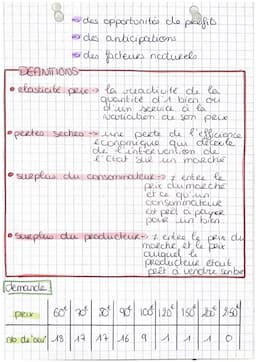 des opportunités de profits
des anticipations
des facteurs naturels
DÉFINITIONS
elasticité prix -> la reactivité de la
quantité d'1 bien ou
d'un service à la
variation de son prix
pertes seches -> une perte de l'efficience
economique qui découle
de l'intervention de
l'Etat sur un marché
surplus du consommateur -> ≠ entre le
prix du marché
et ce qu'un
consommateur
est prêt à payer
pour un bien
surplus du producteur -> ≠ entre le prix du
marché et le prix
auquel le
producteur était
prêt à vendre son bien
demande
prix 60€ 70€ 80€ 90€ 100€ 120€ 150€ 200€ 250€
nb de "oui" 18 17 17 16 9 1 1 1 0